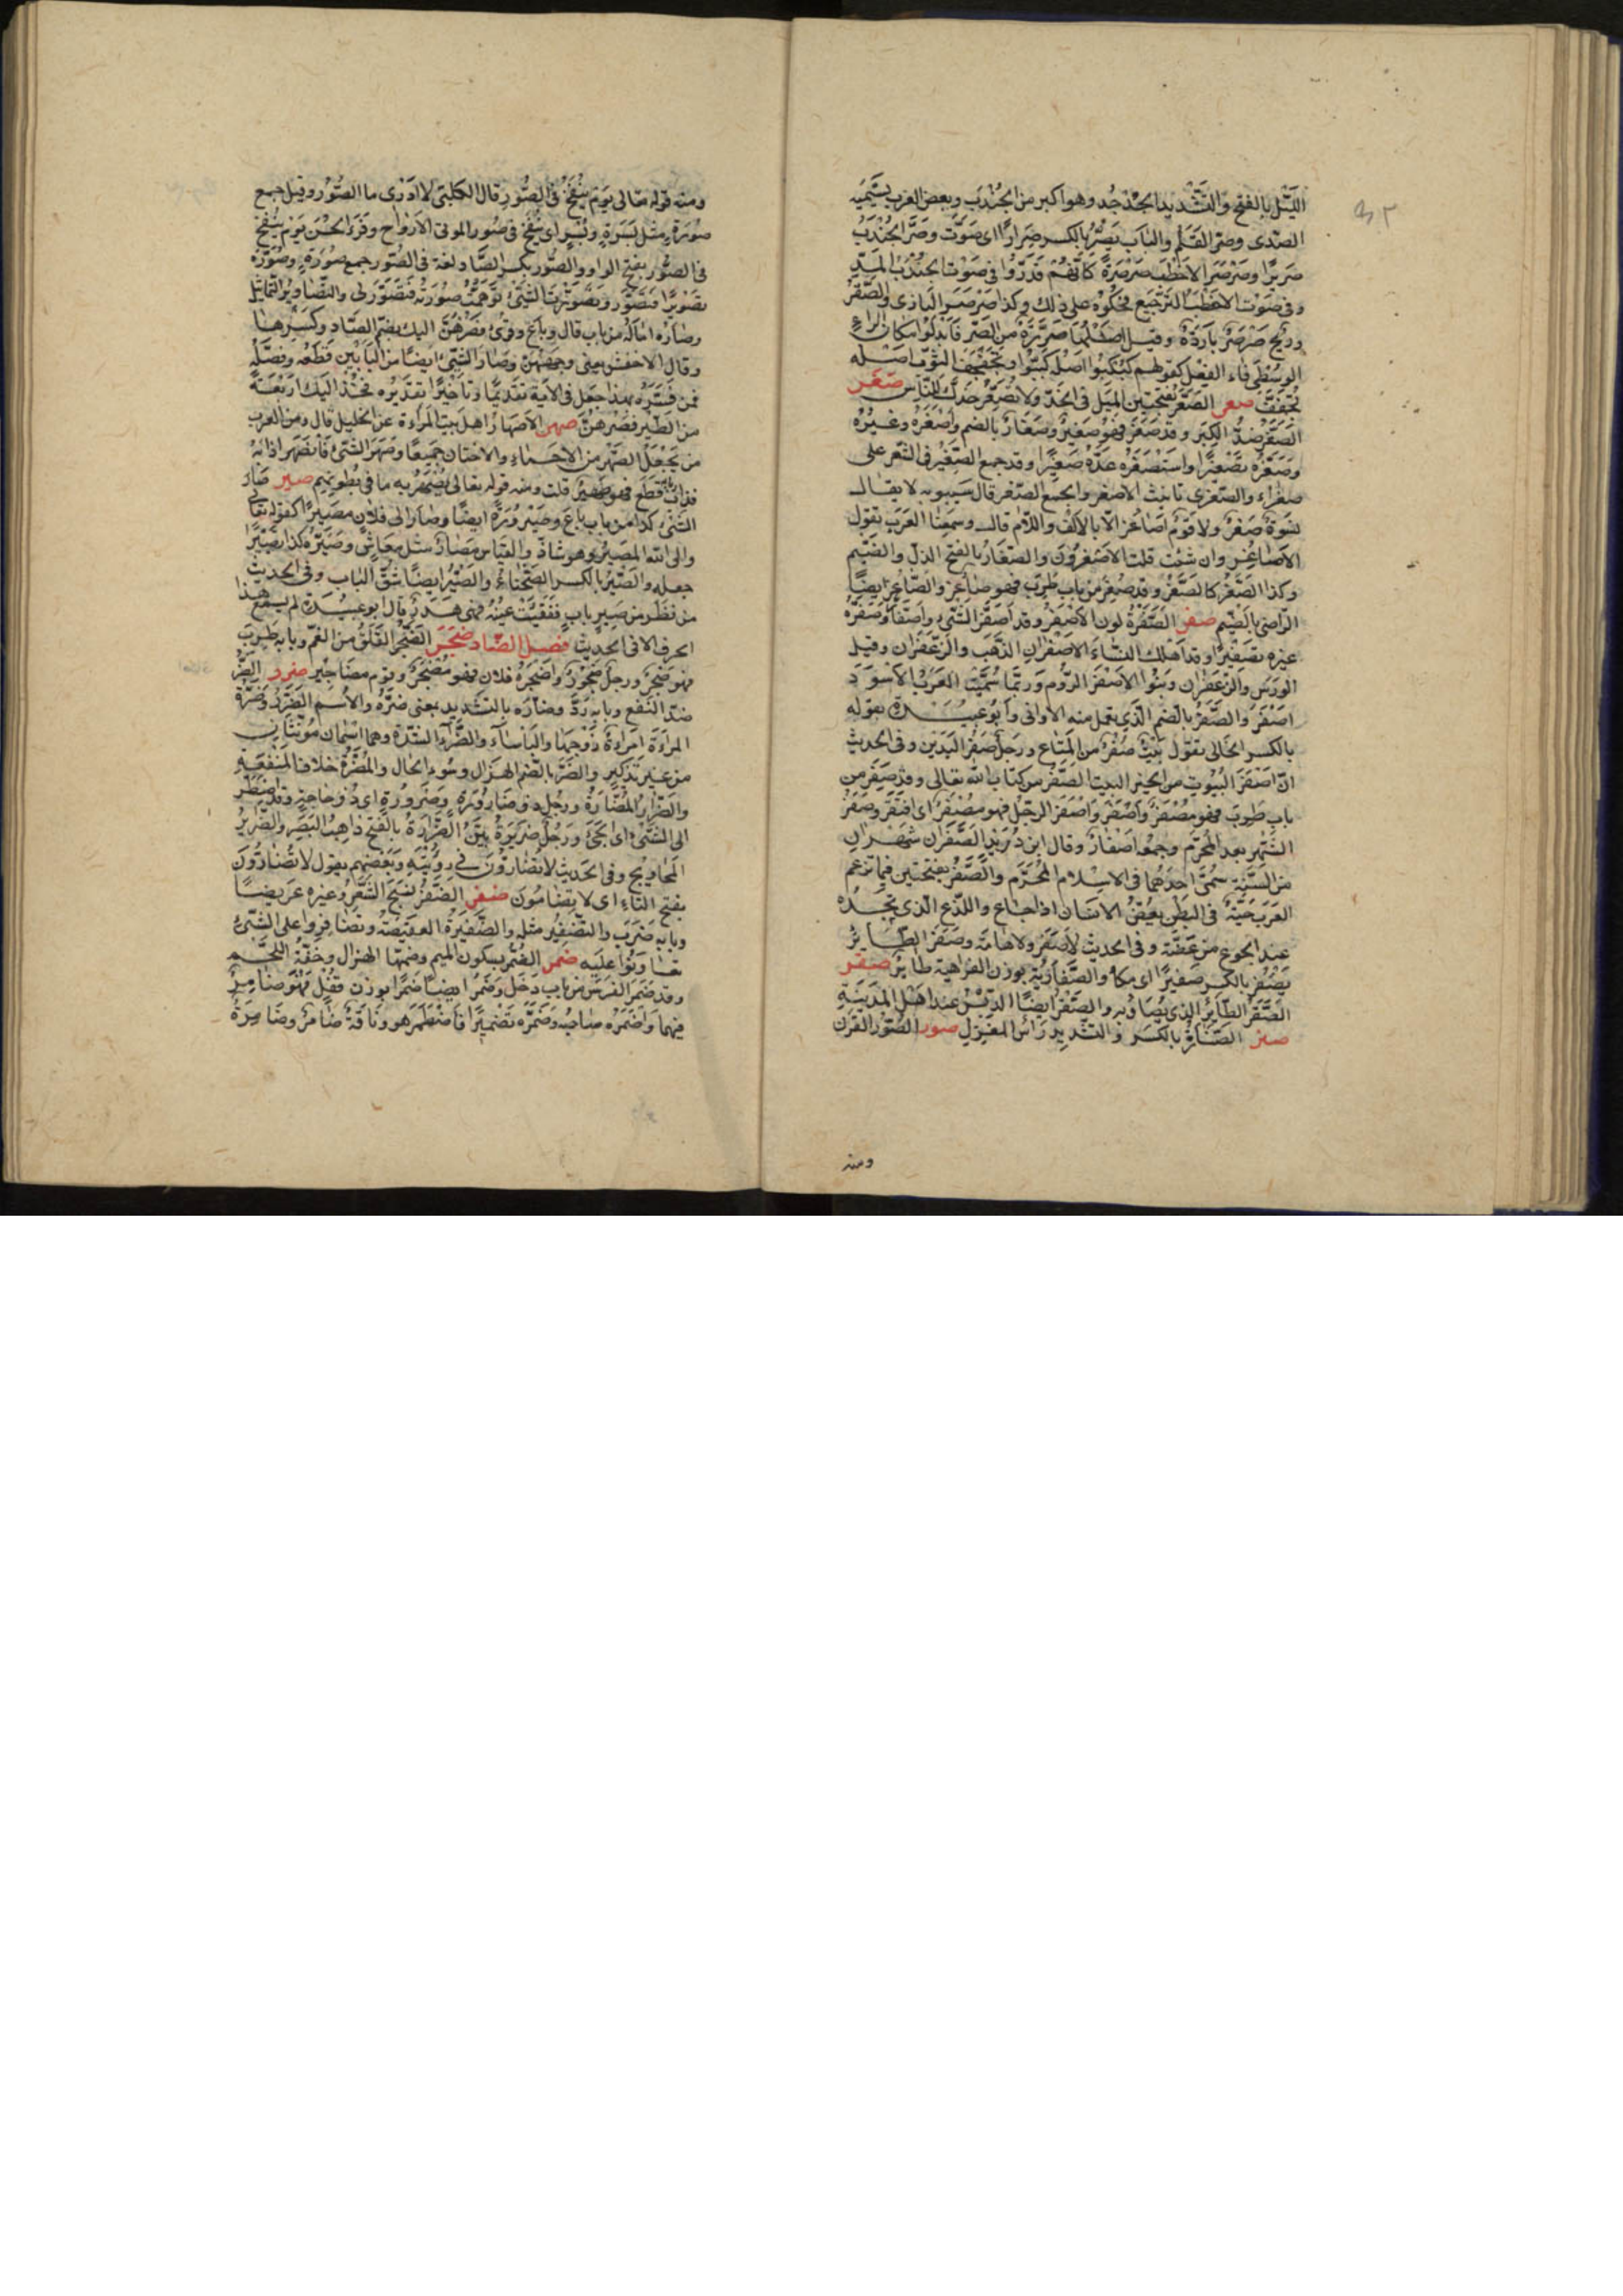 الليل بالفتح والتشديد الجدجد وهو اكبر من الجندب وبعض العرب يسميه
الصدى وصر القلم والباب يصر بالكسر صريرا اى صوت وصر الجندب
صريرا وصرصر الاخطب صرصرة كانهم قدروا فى صوت الجندب المد
وفى صوت الاخطب الترجيع فحكوه على ذلك وكذا صرصر البازى والصقر
وريح صرصر باردة وقيل اصلها صرر من الصر فابدلوا مكان الراء
الوسطى فاء الفعل كقولهم كبكبوا اصله كببوا وتجفجف الثوب اصله
تجفف صعر الصعر بفتحتين الميل فى الخد ولا تصعر خدك للناس صغر
الصغر ضد الكبر وقد صغر فهو صغير وصغار بالضم واصغره وغيره
وصغره تصغيرا واستصغره عده صغيرا وقد جمع الصغير فى الشعر على
صغراء والصغرى تانيث الاصغر والجمع الصغر قال سيبويه لا يقال
نسوة صغر ولا قوم اصاغر الا بالالف واللام قال وسمعنا العرب تقول
الاصاغر وان شئت قلت الاصغرون والصغار بالفتح الذل والضيم
وكذا الصغر كالصغر وقد صغر من باب طرب فهو صاغر والصاغر ايضا
الراضى بالضيم صفر الصفرة لون الاصفر وقد اصفر الشئ واصفار وصفره
غيره تصفيرا وقد اهلك النساء الاصفران الذهب والزعفران وقيل
الورس والزعفران وبنوا الاصفر الروم وربما سميت العرب الاسود
اصفر والصفر بالضم الذى يعمل منه الاوانى وابو عبيدة يقوله
بالكسر الخالى يقول بيت صفر من المتاع ورجل صفر اليدين وفى الحديث
ان اصفر البيوت من الخير البيت الصفر من كتاب الله تعالى وقد صفر من
باب طرب فهو مصفر واصفر واصفر الرجل فهو مصفر اى افتقر وصفر
الشهر بعد المحرم وجمعه اصفار وقال ابن دريد الصفران شهران
من السنة سمى احدهما فى الاسلام المحرم والصفر بفتحتين فيما تزعم
العرب حية فى البطن يعض الانسان اذا جاع واللدغ الذى يجده
عند الجوع من عضه وفى الحديث لا صفر ولا هامة وصفر الطاير
يصفر بالكسر صفيرا اى مكا والصفارية بوزن الغرابية طاير صقر
الصقر الطاير الذى يصاد به والصقر ايضا الدبس عند اهل المدينة
صنر الصنار بالكسر والتشديد راس المغزل صور الصور القرن
ومنه
ومنه قوله تعالى يوم ينفخ فى الصور قال الكلبى لا ادرى ما الصور وقيل جمع
صورة مثل بسرة وبسر اى ينفخ فى صور الموتى الارواح وقرأ الحسن يوم ينفخ
فى الصور بفتح الواو والصور بكسر الصاد لغة فى الصور جمع صورة وصوره
تصويرا فتصور وتصورت الشئ توهمت صورته فتصور لى والتصاوير التماثيل
وصاره اماله من باب قال وباع وقرئ فصرهن اليك بضم الصاد وكسرها
وقال الاخفش يعنى وجههن وصار الشئ ايضا من البابين قطعه وفصله
فمن فسره بهذا جعل فى الاية تقديما وتاخيرا تقديره فخذ اليك اربعة
من الطير فصرهن صهر الاصهار اهل بيت المراة عن الخليل قال ومن العرب
من يجعل الصهر من الاحماء والاختان جميعا وصهر الشئ فانصهر اذابه
فذاب فهو صهير قلت ومنه قوله تعالى يصهر به ما فى بطونهم صير صار
الشئ كذا من باب باع وصيرورة ايضا وصار الى فلان مصيرا كقوله تعالى
والى الله المصير وهو شاذ والقياس مصار مثل معاش وصيره كذا تصييرا
جعله والصير بالكسر الصحناة والصير ايضا شق الباب وفى الحديث
من نظر من صير باب ففقيت عينه فهى هدر قال ابو عبيدة لم يسمع هذا
الحرف الا فى الحديث فصل الضاد ضجر الضجر القلق من الغم وبابه طرب
فهو ضجر ورجل ضجور واضجره فلان فهو مضجر وقوم مضاجير ضرر الضر
ضد النفع وبابه رد وضاره بالتشديد بمعنى ضره والاسم الضرر وضرة
المراة امراة زوجها والباساء والضراء الشدة وهما اسمان مؤنثان
من غير تذكير والضر بالضم الهزال وسوء الحال والمضرة خلاف المنفعة
والضرار المضارة ورجل ذو ضارورة وضرورة اى ذو حاجة وقد اضطر
الى الشئ اى الجئ ورجل ضرير بين الضرارة بالفتح ذاهب البصر والضرير
المحاويج وفى الحديث لا تضارون فى رؤيته وبعضهم يقول لا تضارون
بفتح التاء اى لا تضامون ضفر الضفر نسج الشعر وغيره عريضا
وبابه ضرب والتضفير مثله والضفيرة العقيصة وتضافروا على الشئ
تعاونوا عليه ضمر الضمر بسكون الميم وضمها الهزال وخفة اللحم
وقد ضمر الفرس من باب دخل وضمر ايضا ضمرا بوزن قفل فهو ضامر
فيهما واضمره صاحبه وضمره تضميرا فاضطمر هو وناقة ضامر وضامرة